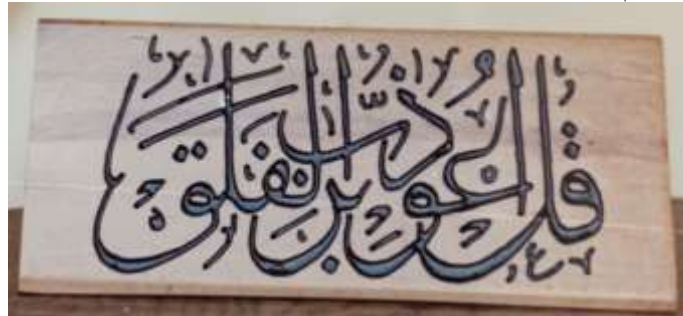 قل أعوذ برب الفلق